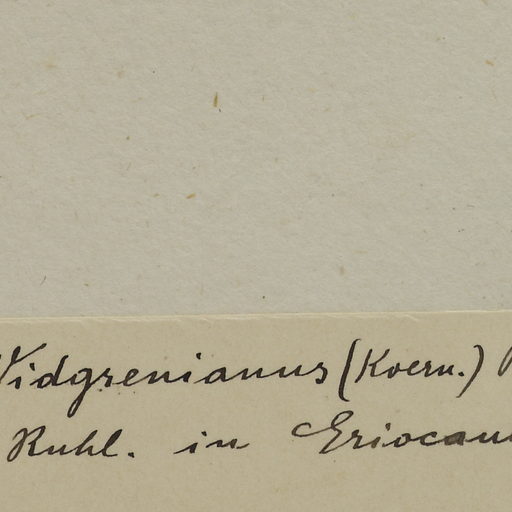 Widgrenianus (Koern.)
Ruhl. in Eriocau